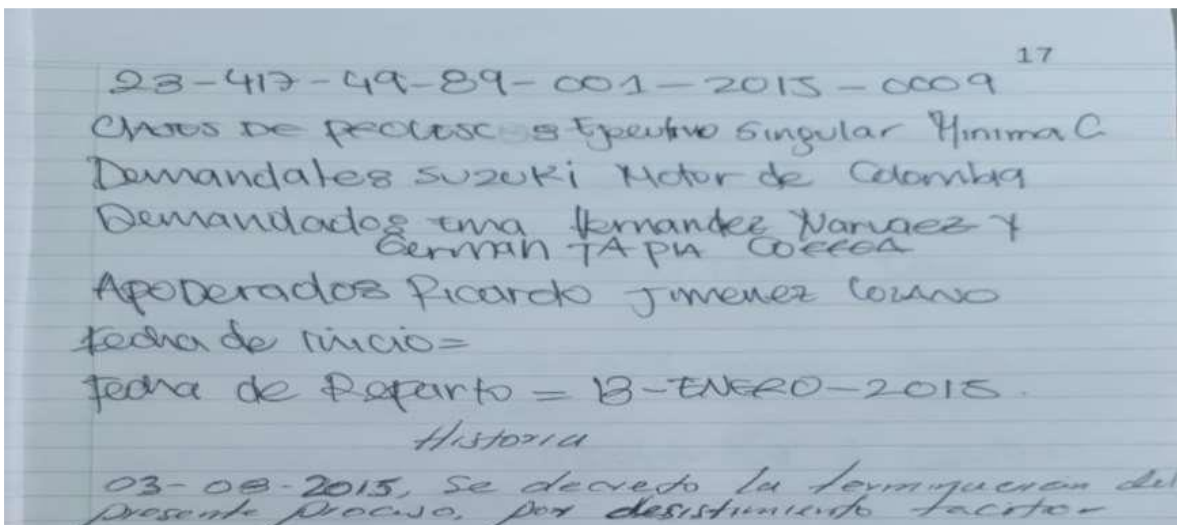 17
23-417-49-89-001-2015-0009
Clases De proceso = Ejecutivo Singular Minima C
Demandates SUZUKI Motor de Colombia
Demandados Ema Hernandez Narvaez y
German TAPIA CORREA
Apoderados Ricardo Jimenez LOZANO
fecha de inicio=
fecha de Reparto = 13-ENERO-2015.
Historia
03-08-2015, Se decreto la terminacion del
presente proceso, por desistimiento tacito-